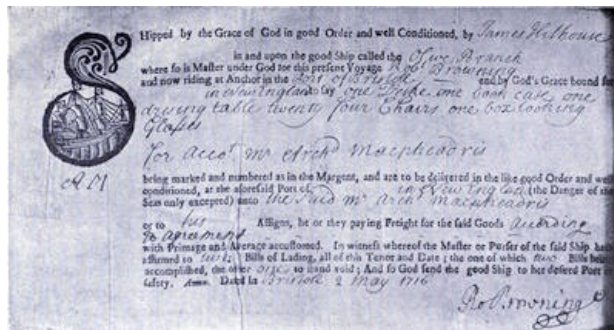 Shipped by the Grace of God in good Order and well Conditioned, by James Hilhouse
in and upon the good Ship called the Olive Branch
where so is Master under God for this present Voyage Robt Browning
and now riding at Anchor in the Port of Bristol and by God's Grace bound for
in New England to say one Deske one book case one
drising table twenty four Chairs one box looking
Glasses
for accot. mr Archd Macpheadris
A M
being marked and numbered as in the Margent, and are to be delivered in the like good Order and well
conditioned, at the aforesaid Port of in New England (the Danger of the
Seas only excepted) unto the said Mr Archd Macpheadris
or to his Assigns, he or they paying Freight for the said Goods according
to agreement
with Primage and Average accustomed. In witness whereof the Master or Purser of the said Ship hath
affirmed to Bills of Lading, all of this Tenor and Date; the one of which two Bills being
accomplished, the other to stand void; And so God send the good Ship to her desired Port in
safety. Amen. Dated in Bristole 2 May 1716
Ro Browning